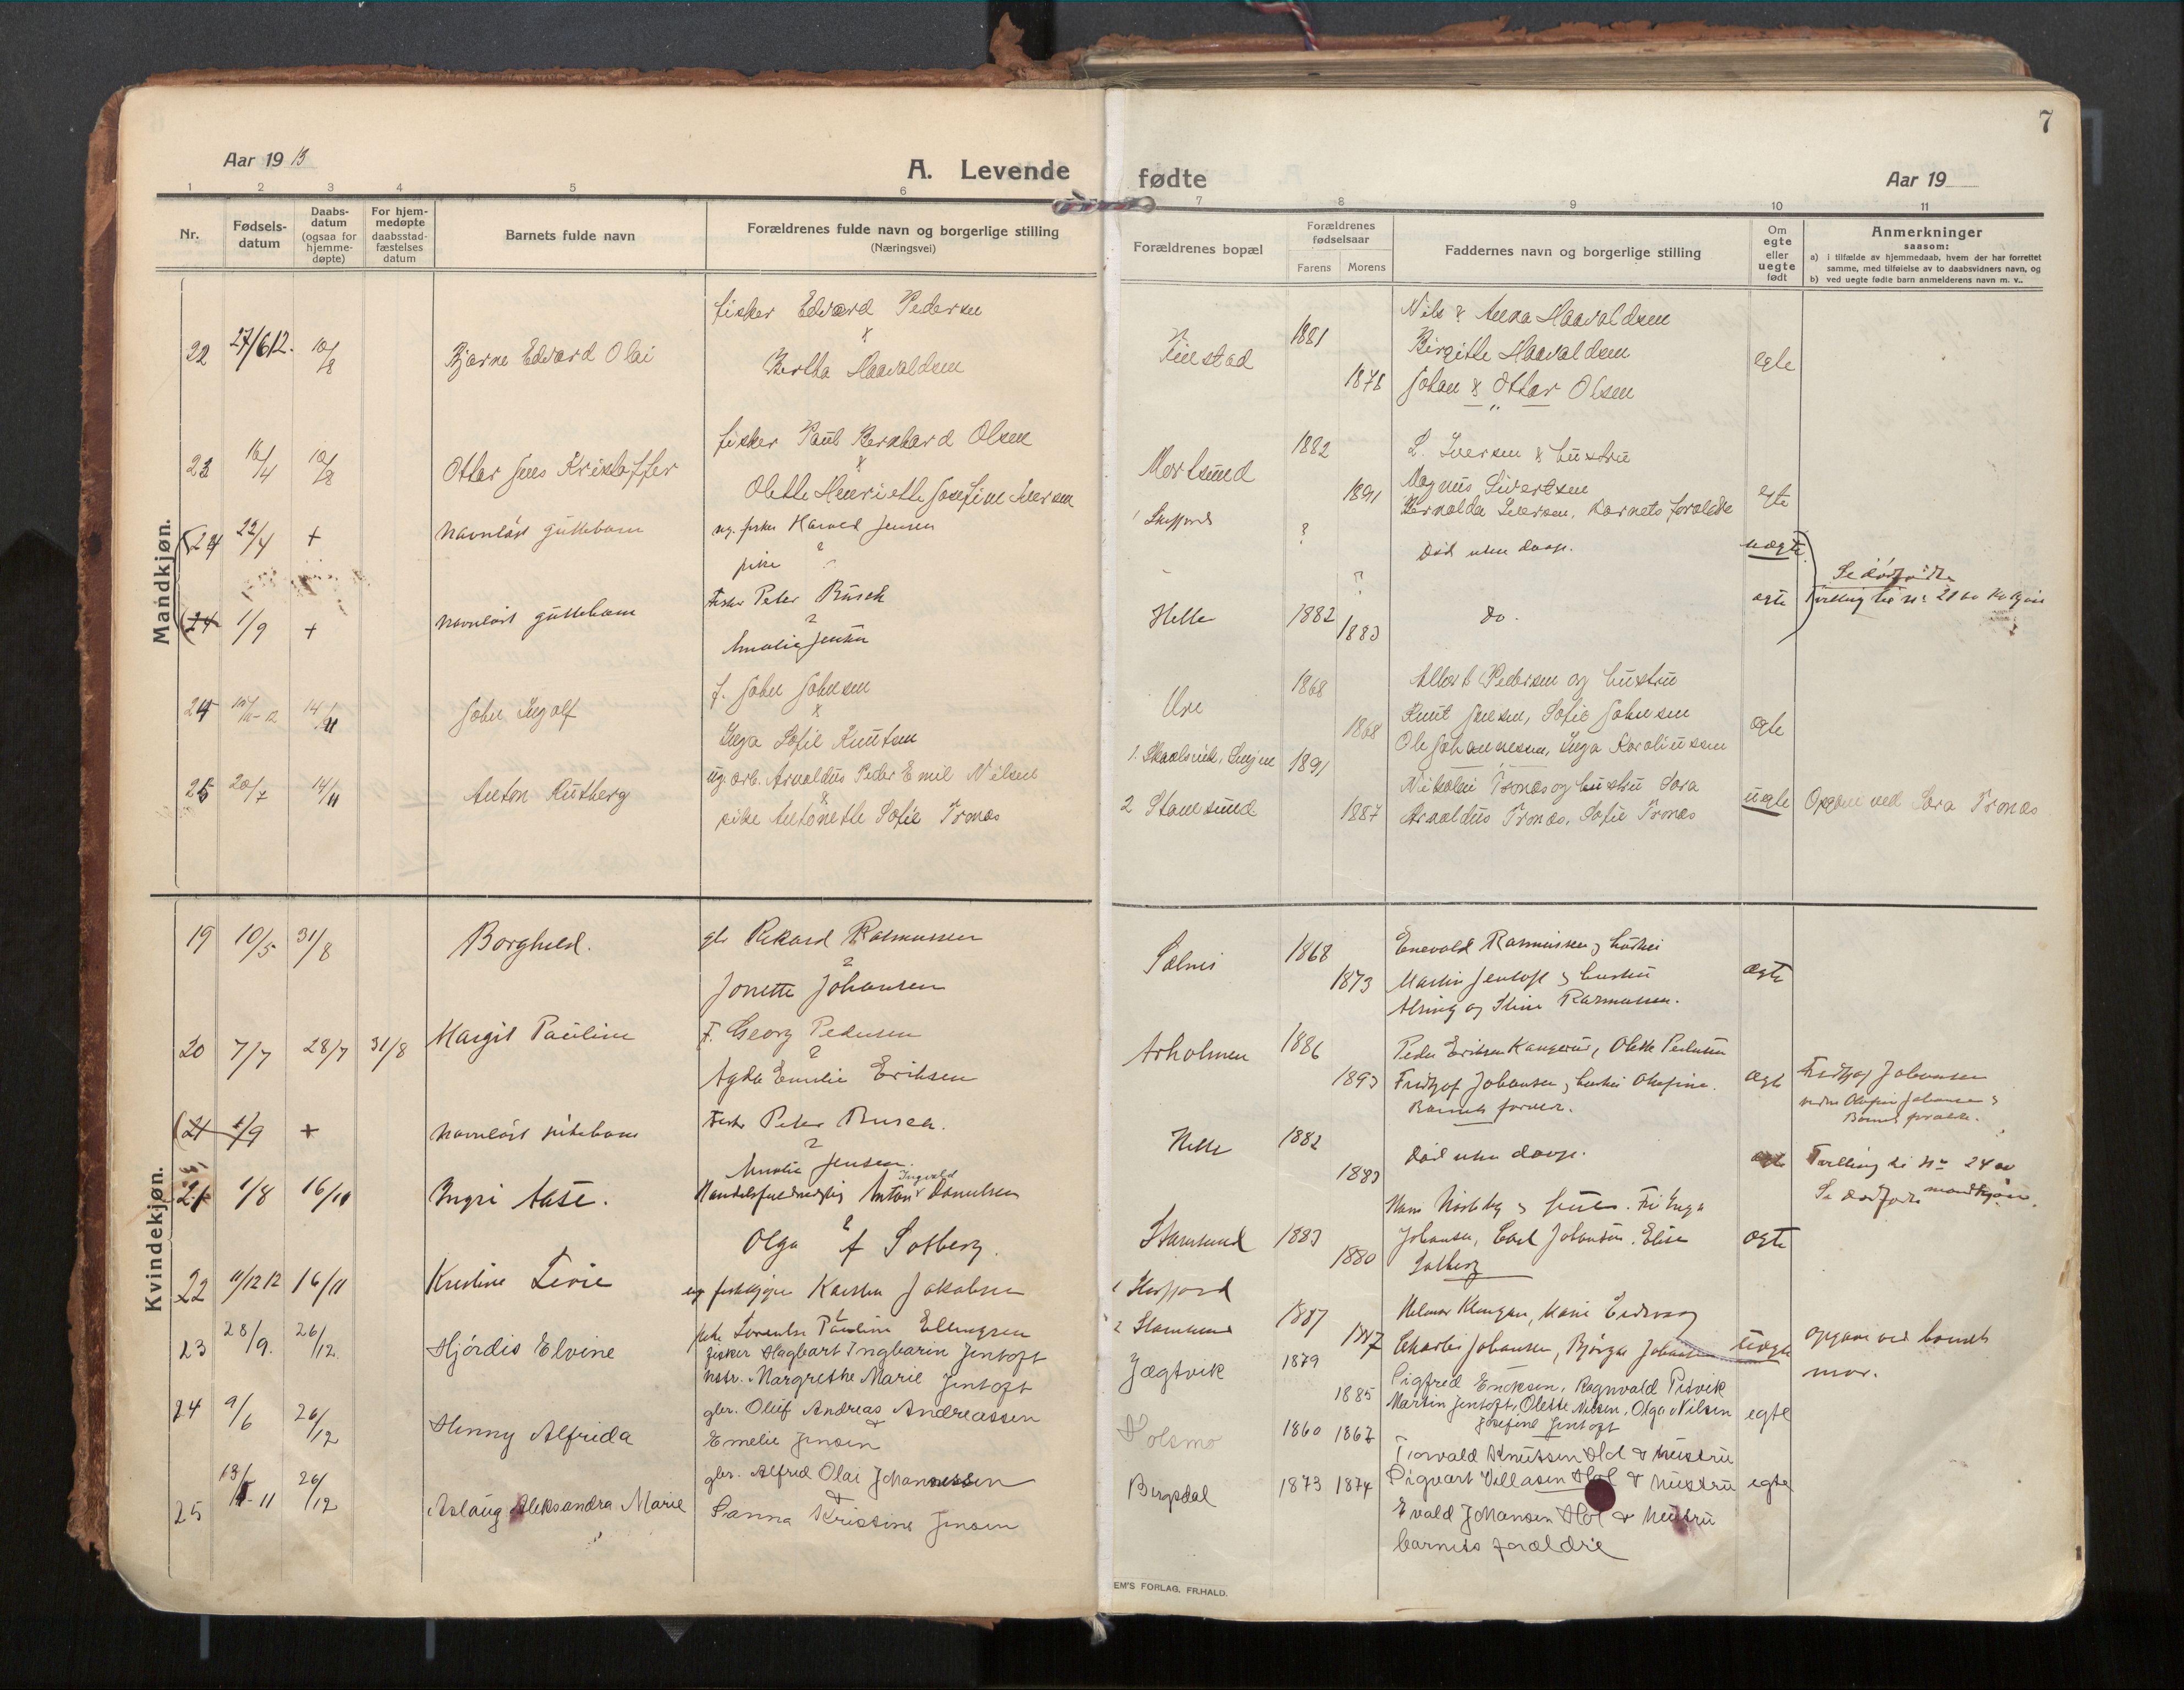 7
Aar 19 13
A. Levende
fødte
Aar 19
1 2 3 4 5 6 7 8 9 10 11
Nr.
Fødsels-
datum
Daabs-
datum
(ogsaa for
hjemme-
døpte)
For hjem-
medøpte
daabsstad-
fæstelses
datum
Barnets fulde navn
Forældrenes fulde navn og borgerlige stilling
(Næringsvei)
Forældrenes bopæl
Forældrenes
fødselsaar
Farens Morens
Faddernes navn og borgerlige stilling
Om
egte
eller
uegte
født
Anmerkninger
saasom:
a) i tilfælde av hjemmedaab, hvem der har forrettet
samme, med tilføielse av to daabsvidners navn, og
b) ved uegte fødte barn anmelderens navn m. v..
Mandkjøn.
fisker Edvard Pedersen
22 27/6 12. 10/8 Bjarne Edvard Olai
&
Bertha Haavaldsen
1881
1878
Nils & Anna Haavaldsen
Birgitte Haavaldsen
Johan & Ottar Olsen
egte
fisker Paul Bernhard Olsen
23 16/4 10/8 Ottar Jens Kristoffer
&
Olette Henriette Josefine Iversen
Mortsund
1882
1891
L. Iversen & hustru
Magnus Sivertsen
Iversen, Barnets forældre
egte
24 22/4 + navnløst guttebarn
ug. fisker Harald Jensen
pike
?
?
Død uten daap.
uegte
24 1/9 + navnløst guttebarn
Fisker Peter Busch
&
Amalie Jensen
Helle
1882
1883
do.
egte
Tvilling til nr 21 av
24 14/11 John Ingolf
f. John Johnsen
&
Inga Sofie Knutsen
Ure
1868
1868
Albert Pedersen og hustru
Knut Jensen, Sofie Johnsen
Ole Johannesen, Inga Karoliussen
egte
25 20/7 14/11 Anton Rutberg
ug. arb. Arnoldus Peder Emil Nilsen
&
pike Antonette Sofie Tronæs
2 Stamsund
1891
1887
Nikolai Tronæs og hustru Sara
Arnoldus Tronæs, Sofie Tronæs
uegte
Opgave ved Sara Tronæs
Kvindekjøn.
19 10/5 31/8 Borghild.
gbr Rikard Rasmussen
&
Jonette Johansen
1868
1873
Enevold Rasmussen & hustru
Martin Jentoft & hustru
og Stine Rasmussen.
egte
20 7/7 28/7 31/8 Margit Pauline
F. Georg Pedersen
&
Agda Emilie Eriksen
Arholmen
1886
1893
Peder Eriksen, Olette Pedersen
Fridtjof Johansen & hustru
Barnets forældre.
egte
Fridtjof Johansen
Barnets forældre.
21 1/9 + navnløst pikebarn
Fisker Peter Busch.
&
Amalie Jensen.
Helle
1882
1883
død uten daap.
egte
Tvilling til Nr 24 av
mandkjøn.
21 1/8 16/10 Ingri Aase.
Ingvald
Anton Danielsen
&
Olga f Solberg.
Stamsund
1883
1880
Johansen, Carl Johansen. Elise
Solberg
egte
22 11/12 12 16/11 Kristine
Karsten Jakobsen
&
pike Pauline Ellingsen
2 Stamsund
1887
1887
Charles Johansen, Johansen
uegte
opgave ved barnets
mor.
23 28/9. 26/12. Hjórdis Elvine
fisker Hagbart Ingbarin Jentoft
hstr. Margrethe Marie Jentoft
Jægtvik
1879
1885
Sigfred Eriksen, Ragnvald Petvik
Martin Jentoft, Olette Nilsen, Olga Nilsen
Josefine Jentoft
egte
24 9/6 26/12 Henny Alfrida
gbr. Oluf Andreas Andreassen
&
Emelie Jensen
Holsmo
1860 1867
Torvald Knutsen Hol & hustru
25 26/12 Aslaug Aleksandra Marie
gbr. Alfred Olai Johannessen
&
Sanna Kristine Jensen
Bergsdal
1873 1874
Sigvart Villasen Hol & hustru
Evald Johansen Hol & hustru
barnets forældre
egte
EM'S FORLAG, FR.HALD.